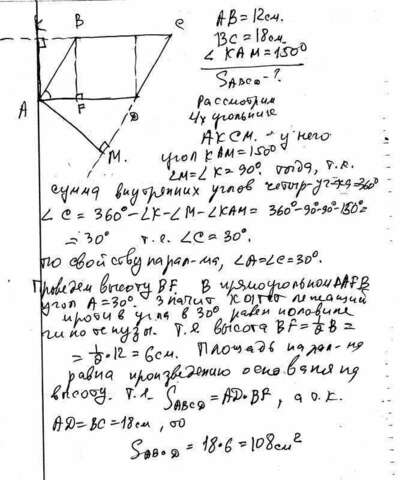 K B C
A F D
M.
AB = 12см.
BC = 18см.
∠ KAM = 150°
S ABCD - ?
Рассмотрим
4х угольник
AKCM. - у него
угол KAM = 150°
∠M = ∠K = 90°. тогда, т.к.
сумма внутренних углов четыр-уг-ка = 360°
∠C = 360° - ∠K - ∠M - ∠KAM = 360° - 90° - 90° - 150° =
= 30° т.е. ∠C = 30°.
по свойству парал-ма, ∠A = ∠C = 30°.
Проведем высоту BF. В прямоугольном ΔAFB
угол A = 30°. Значит катет лежащий
против угла в 30° равен половине
гипотенузы. Т.е высота BF = ½ AB =
= ½ · 12 = 6см. Площадь парал-ма
равна произведению основания на
высоту. т.е. S ABCD = AD · BF, а т.к.
AD = BC = 18см, то
S ABCD = 18 · 6 = 108 см²